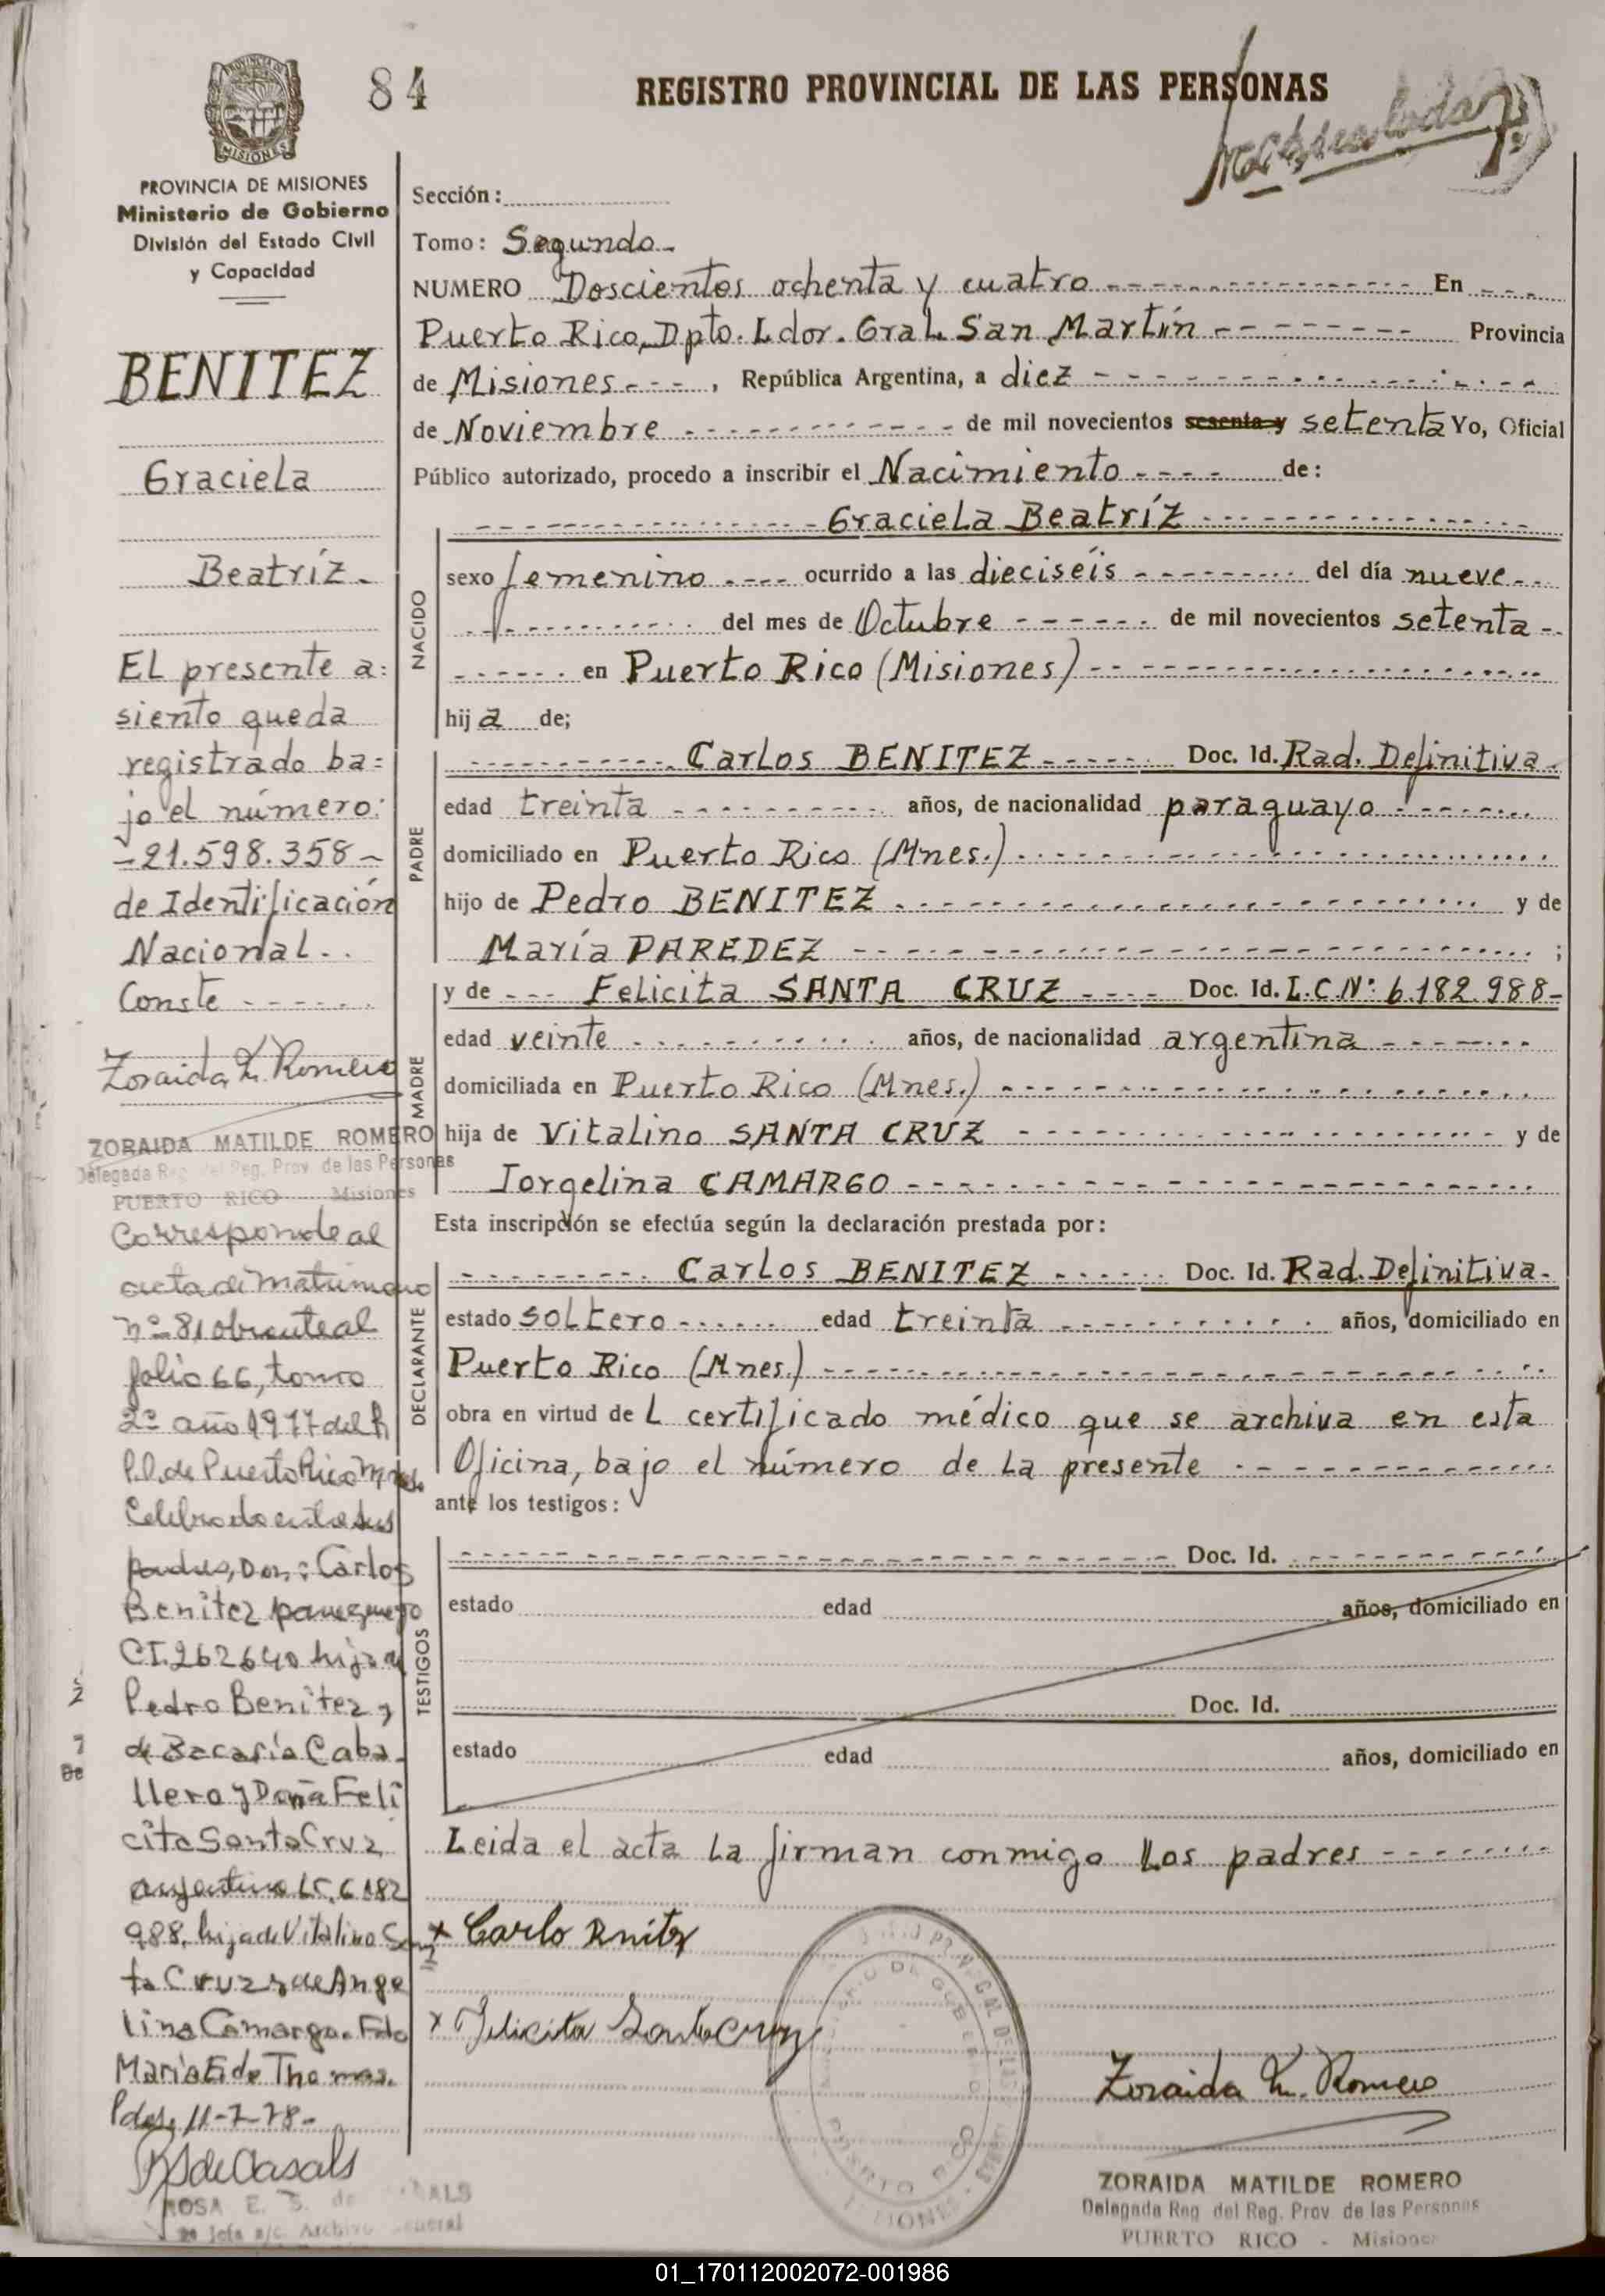 84
REGISTRO PROVINCIAL DE LAS PERSONAS
MISIONES
PROVINCIA DE MISIONES
Ministerio de Gobierno
División del Estado Civil
y Capacidad
BENITEZ
Graciela
Beatríz.
El presente a=
siento queda
registrado ba=
jo el número:
-21.598.358-
de Identificación
Nacional..
Conste
Zoraida M. Romero
ZORAIDA MATILDE ROMERO
Delegada Reg. del Reg. Prov. de las Personas
PUERTO RICO Misiones
Corresponde al
acta de matrimonio
nº 81 obrante al
folio 66, tomo
2º año 1977 del R
P.P. de Puerto Rico Mnes
Celebrado entre sus
padres, Don: Carlos
Benitez paraguayo
CI. 262640 hijo de
Pedro Benitez y
de Bacaría Caba-
llero y Doña Feli
cita Santa Cruz
argentina LC. 6182
988, hija de Vitalino San
ta Cruz y de Ange
lina Camargo. Fdo
Maria E. de Thomas.
Pdas. 11-7-78-
RSdeCasals
ROSA E. S. de CASALS
2a Jefa a/c. Archivo General
Sección:
Tomo: Segundo-
NUMERO Doscientos ochenta y cuatro En
Puerto Rico, Dpto. Ldor. Gral. San Martín Provincia
de Misiones , República Argentina, a diez
de Noviembre de mil novecientos sesenta y setenta Yo, Oficial
Público autorizado, procedo a inscribir el Nacimiento de:
NACIDO
Graciela Beatríz
sexo femenino ocurrido a las dieciséis del día nueve
del mes de Octubre de mil novecientos setenta
en Puerto Rico (Misiones)
hij a de;
PADRE
Carlos BENITEZ Doc. Id. Rad. Definitiva.
edad treinta años, de nacionalidad paraguayo
domiciliado en Puerto Rico (Mnes.)
hijo de Pedro BENITEZ y de
María PAREDEZ ;
MADRE
y de Felicita SANTA CRUZ Doc. Id. L.C.Nº: 6.182.988-
edad veinte años, de nacionalidad argentina
domiciliada en Puerto Rico (Mnes.)
hija de Vitalino SANTA CRUZ y de
Jorgelina CAMARGO
Esta inscripción se efectúa según la declaración prestada por:
DECLARANTE
Carlos BENITEZ Doc. Id. Rad. Definitiva.
estado soltero edad treinta años, domiciliado en
Puerto Rico (Mnes.)
obra en virtud de L certificado médico que se archiva en esta
Oficina, bajo el número de la presente
ante los testigos:
TESTIGOS
Doc. Id.
estado edad años, domiciliado en
Doc. Id.
estado edad años, domiciliado en
Leida el acta la firman conmigo los padres
x Carlo Bnitz
x Felicita Santacruz
Zoraida M. Romero
ZORAIDA MATILDE ROMERO
Delegada Reg del Reg. Prov de las Personas
PUERTO RICO - Misiones
01_170112002072-001986